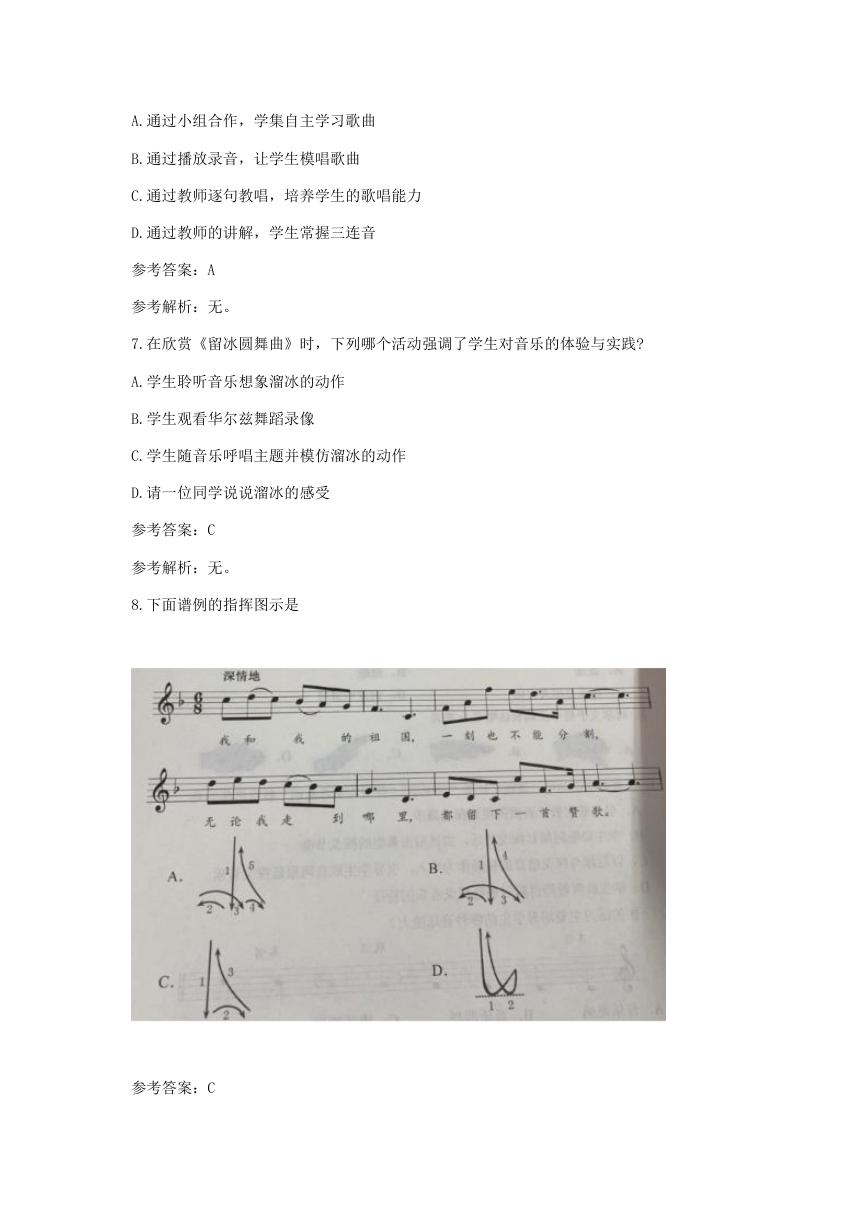 A.通过小组合作，学集自主学习歌曲
B.通过播放录音，让学生模唱歌曲
C.通过教师逐句教唱，培养学生的歌唱能力
D.通过教师的讲解，学生常握三连音
参考答案：A
参考解析：无。
7.在欣赏《留冰圆舞曲》时，下列哪个活动强调了学生对音乐的体验与实践?
A.学生聆听音乐想象溜冰的动作
B.学生观看华尔兹舞蹈录像
C.学生随音乐呼唱主题并模仿溜冰的动作
D.请一位同学说说溜冰的感受
参考答案：C
参考解析：无。
8.下面谱例的指挥图示是
深情地
6
8
我 和 我 的 祖 国， 一 刻 也 不 能 分 割，
无 论 我 走 到 哪 里， 都 留 下 一 首 赞 歌。
A. 1 5 2 3 4
B. 1 4 2 3
C. 1 3 2
D. 1 2
参考答案：C